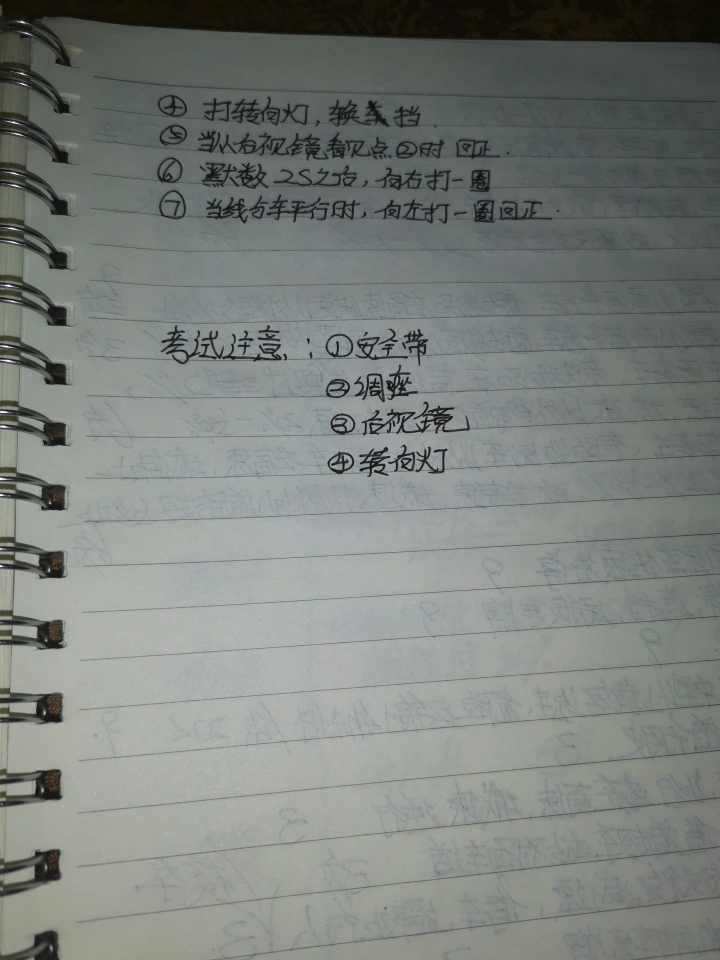 ④ 打转向灯，换挡.
⑤ 当从右视镜看见点②时 回正.
⑥ 默数2S之后，向右打一圈
⑦ 当线与车平行时，向左打一圈回正.
考试注意：①安全带
②调座
③后视镜
④转向灯